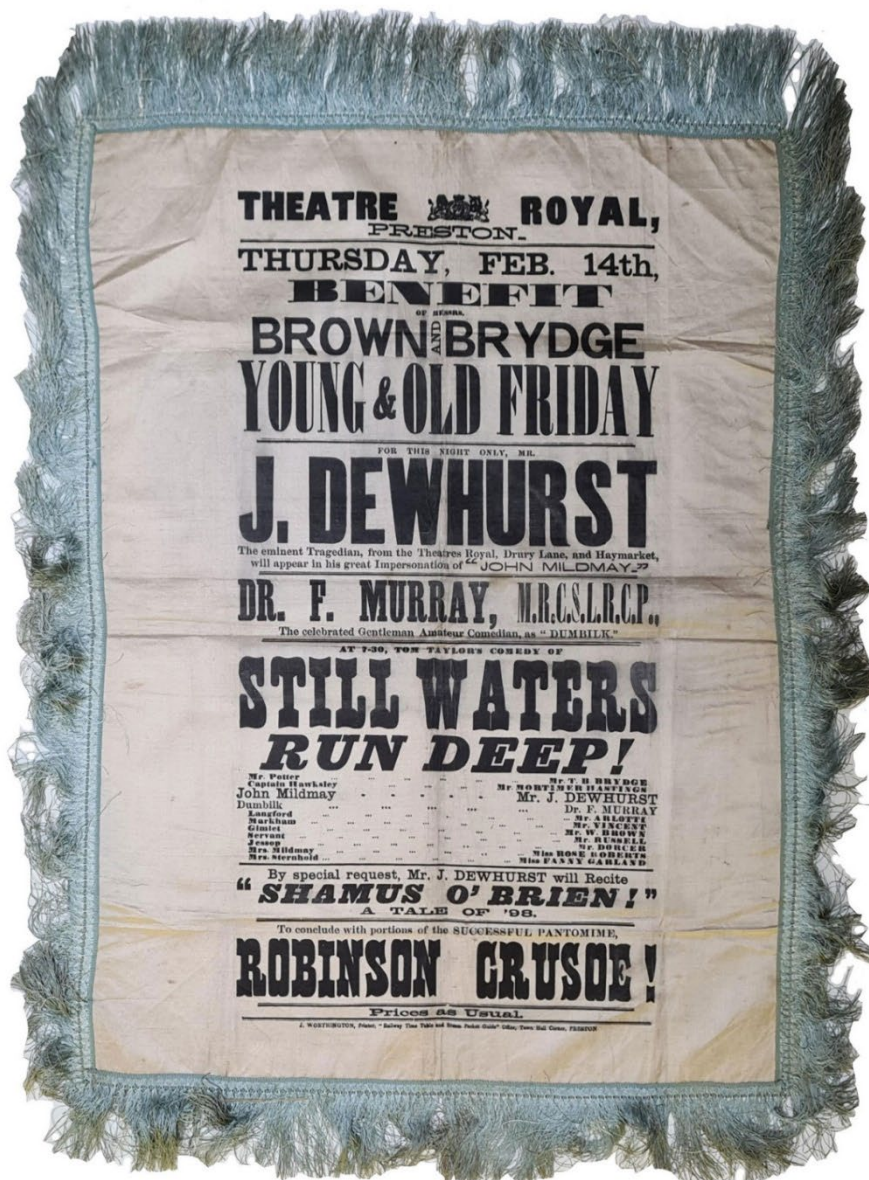 THEATRE ROYAL,
PRESTON.
THURSDAY, FEB. 14th,
BENEFIT
OF MESSRS.
BROWN AND BRYDGE
YOUNG & OLD FRIDAY
FOR THIS NIGHT ONLY, MR.
J. DEWHURST
The eminent Tragedian, from the Theatres Royal, Drury Lane, and Haymarket,
will appear in his great Impersonation of "JOHN MILDMAY."
DR. F. MURRAY, M.R.C.S.L.R.C.P.,
The celebrated Gentleman Amateur Comedian, as "DUMBILK."
AT 7-30, TOM TAYLOR'S COMEDY OF
STILL WATERS
RUN DEEP!
Mr. Potter ... ... ... ... ... Mr. T. B. BRYDGE
Captain Hawksley ... ... ... ... Mr. MORTIMER HASTINGS
John Mildmay - - - - - Mr. J. DEWHURST
Dumbilk ... ... ... ... Dr. F. MURRAY
Langford ... ... ... ... ... Mr. ARLOTTE
Markham ... ... ... ... ... Mr. VINCENT
Gimlet ... ... ... ... ... Mr. W. BROWN
Servant ... ... ... ... ... Mr. RUSSELL
Jessop ... ... ... ... ... Mr. DORCER
Mrs. Mildmay ... ... ... ... Miss ROSE ROBERTS
Mrs. Sternhold ... ... ... ... Miss FANNY GARLAND
By special request, Mr. J. DEWHURST will Recite
"SHAMUS O'BRIEN!"
A TALE OF '98.
To conclude with portions of the SUCCESSFUL PANTOMIME,
ROBINSON CRUSOE!
Prices as Usual.
J. WORTHINGTON, Printer, "Railway Time Table and Steam Packet Guide" Office, Town Hall Corner, PRESTON